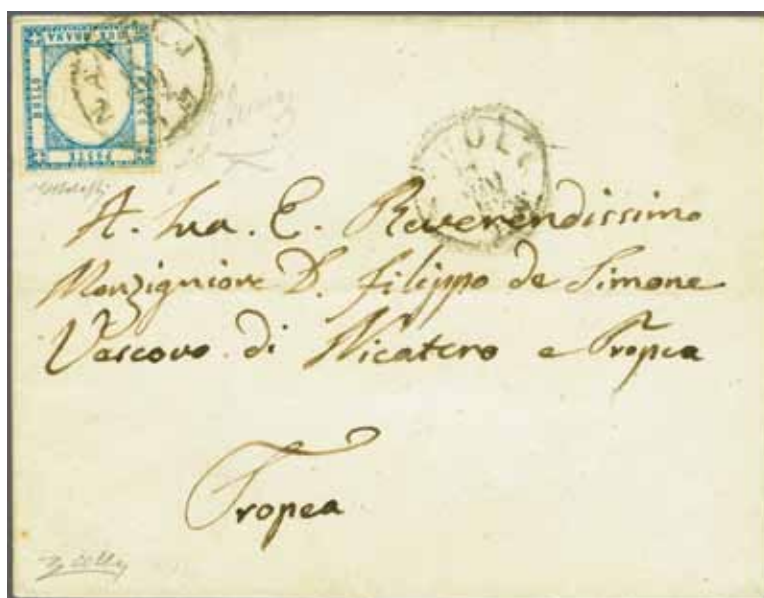 GRANA
BOLLO
POSTE
NA
A. Sua. E. Reverendissimo
Monzigniore D. Filippo de Simone
Vescovo di Nicatero e Tropea
Tropea